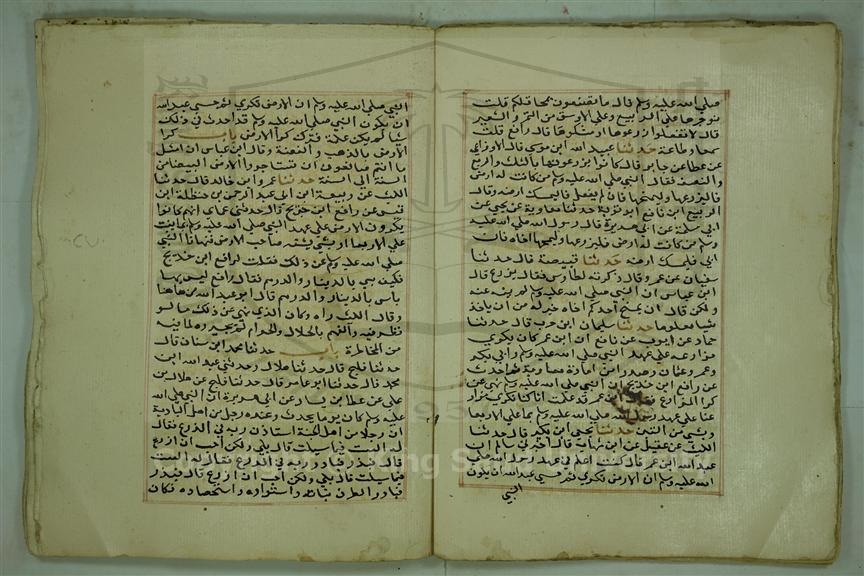 صلى الله عليه وسلم قال ما تصنعون بمحاقلكم قلت
نوجرها على الربيع وعلى الاوسق من التمر والشعير
قال لا تفعلوا ازرعوها او امسكوها قال رافع قلت
سمعا وطاعة حدثنا عبيد الله ابن موسى قال الاوزاعي
عن عطا عن جابر قال كانوا يزرعونها بالثلث والربع
والنصف فقال النبي صلى الله عليه وسلم من كانت له ارض
فليزرعها وليمنحها فان لم يفعل فليمسك ارضه وقال
الربيع ابن نافع ابو توبة حدثنا معاوية عن يحيى عن
ابي سلمة عن ابي هريرة قال رسول الله صلى الله عليه
وسلم من كانت له ارض فليزرعها او ليمنحها اخاه فان
ابى فليمسك ارضه حدثنا قبيصة قال حدثنا
سفيان عن عمرو قال ذكرته لطاوس فقال يزرع قال
ابن عباس ان النبي صلى الله عليه وسلم لم ينه عنه
ولكن قال ان يمنح احدكم اخاه خير له من ان ياخذ
شيا معلوما حدثنا سليمان ابن حرب قال حدثنا
حماد عن ايوب عن نافع ان ابن عمر كان يكري
مزارعه على عهد النبي صلى الله عليه وسلم وابي بكر
وعمر وعثمان وصدرا من امارة معاوية ثم حدث
عن رافع ابن خديج ان النبي صلى الله عليه وسلم نهى عن
كرا المزارع ابن عمر قد علمت انا كنا نكري مزار
عنا على عهد رسول الله صلى الله عليه وسلم بما على الاربعا
وبشي من التبن حدثنا يحيى ابن بكير قال حدثنا
الليث عن عقيل عن ابن شهاب قال اخبرني سالم ان
عبد الله ابن عمر قال كنت اعلم في عهد رسول الله صلى
الله عليه وسلم ان الارض تكرى ثم خشي عبد الله ان يكون
النبي
النبي صلى الله عليه وسلم ان الارض تكرى ثم خشي عبد الله
ان يكون النبي صلى الله عليه وسلم قد احدث في ذلك
شيا لم يكن علمه فترك كرا الارض باب كرا
الارض بالذهب والفضة وقال ابن عباس ان امثل
ما انتم صانعون ان تستاجروا الارض البيضا من
السنة الى السنة حدثنا عمرو ابن خالد قال حدثنا
الليث عن ربيعة ابن ابي عبد الرحمن عن حنظلة ابن
قيس عن رافع ابن خديج قال حدثني عماي انهم كانوا
يكرون الارض على عهد النبي صلى الله عليه وسلم بما ينبت
على الاربعا او بشي يستثنيه صاحب الارض فنهانا النبي
صلى الله عليه وسلم عن ذلك فقلت لرافع ابن خديج
فكيف هي بالدينار والدرهم فقال رافع ليس بها
باس بالدينار والدرهم قال ابو عبد الله من هاهنا
وقال الليث اراه وكان الذي نهى عن ذلك ما لو
نظر فيه ذو الفهم بالحلال والحرام لم يجزه لما فيه
من المخاطرة باب حدثنا محمد ابن سنان قال
حدثنا فليح قال حدثنا هلال وحدثني عبد الله ابن
محمد قال حدثنا ابو عامر قال حدثنا فليح عن هلال بن
علي عن عطا بن يسار عن ابي هريرة ان النبي صلى الله
عليه وسلم كان يوما يحدث وعنده رجل من اهل البادية
ان رجلا من اهل الجنة استاذن ربه في الزرع فقال
له الست فيما شيت قال بلى ولكن احب ان ازرع
قال فبذر فبادر ربه في الزرع فقال له الست
فيما شيت قال بلى ولكن احب ان ازرع قال فبذر
فبادر الطرف نباته واستواوه واستحصاده فكان